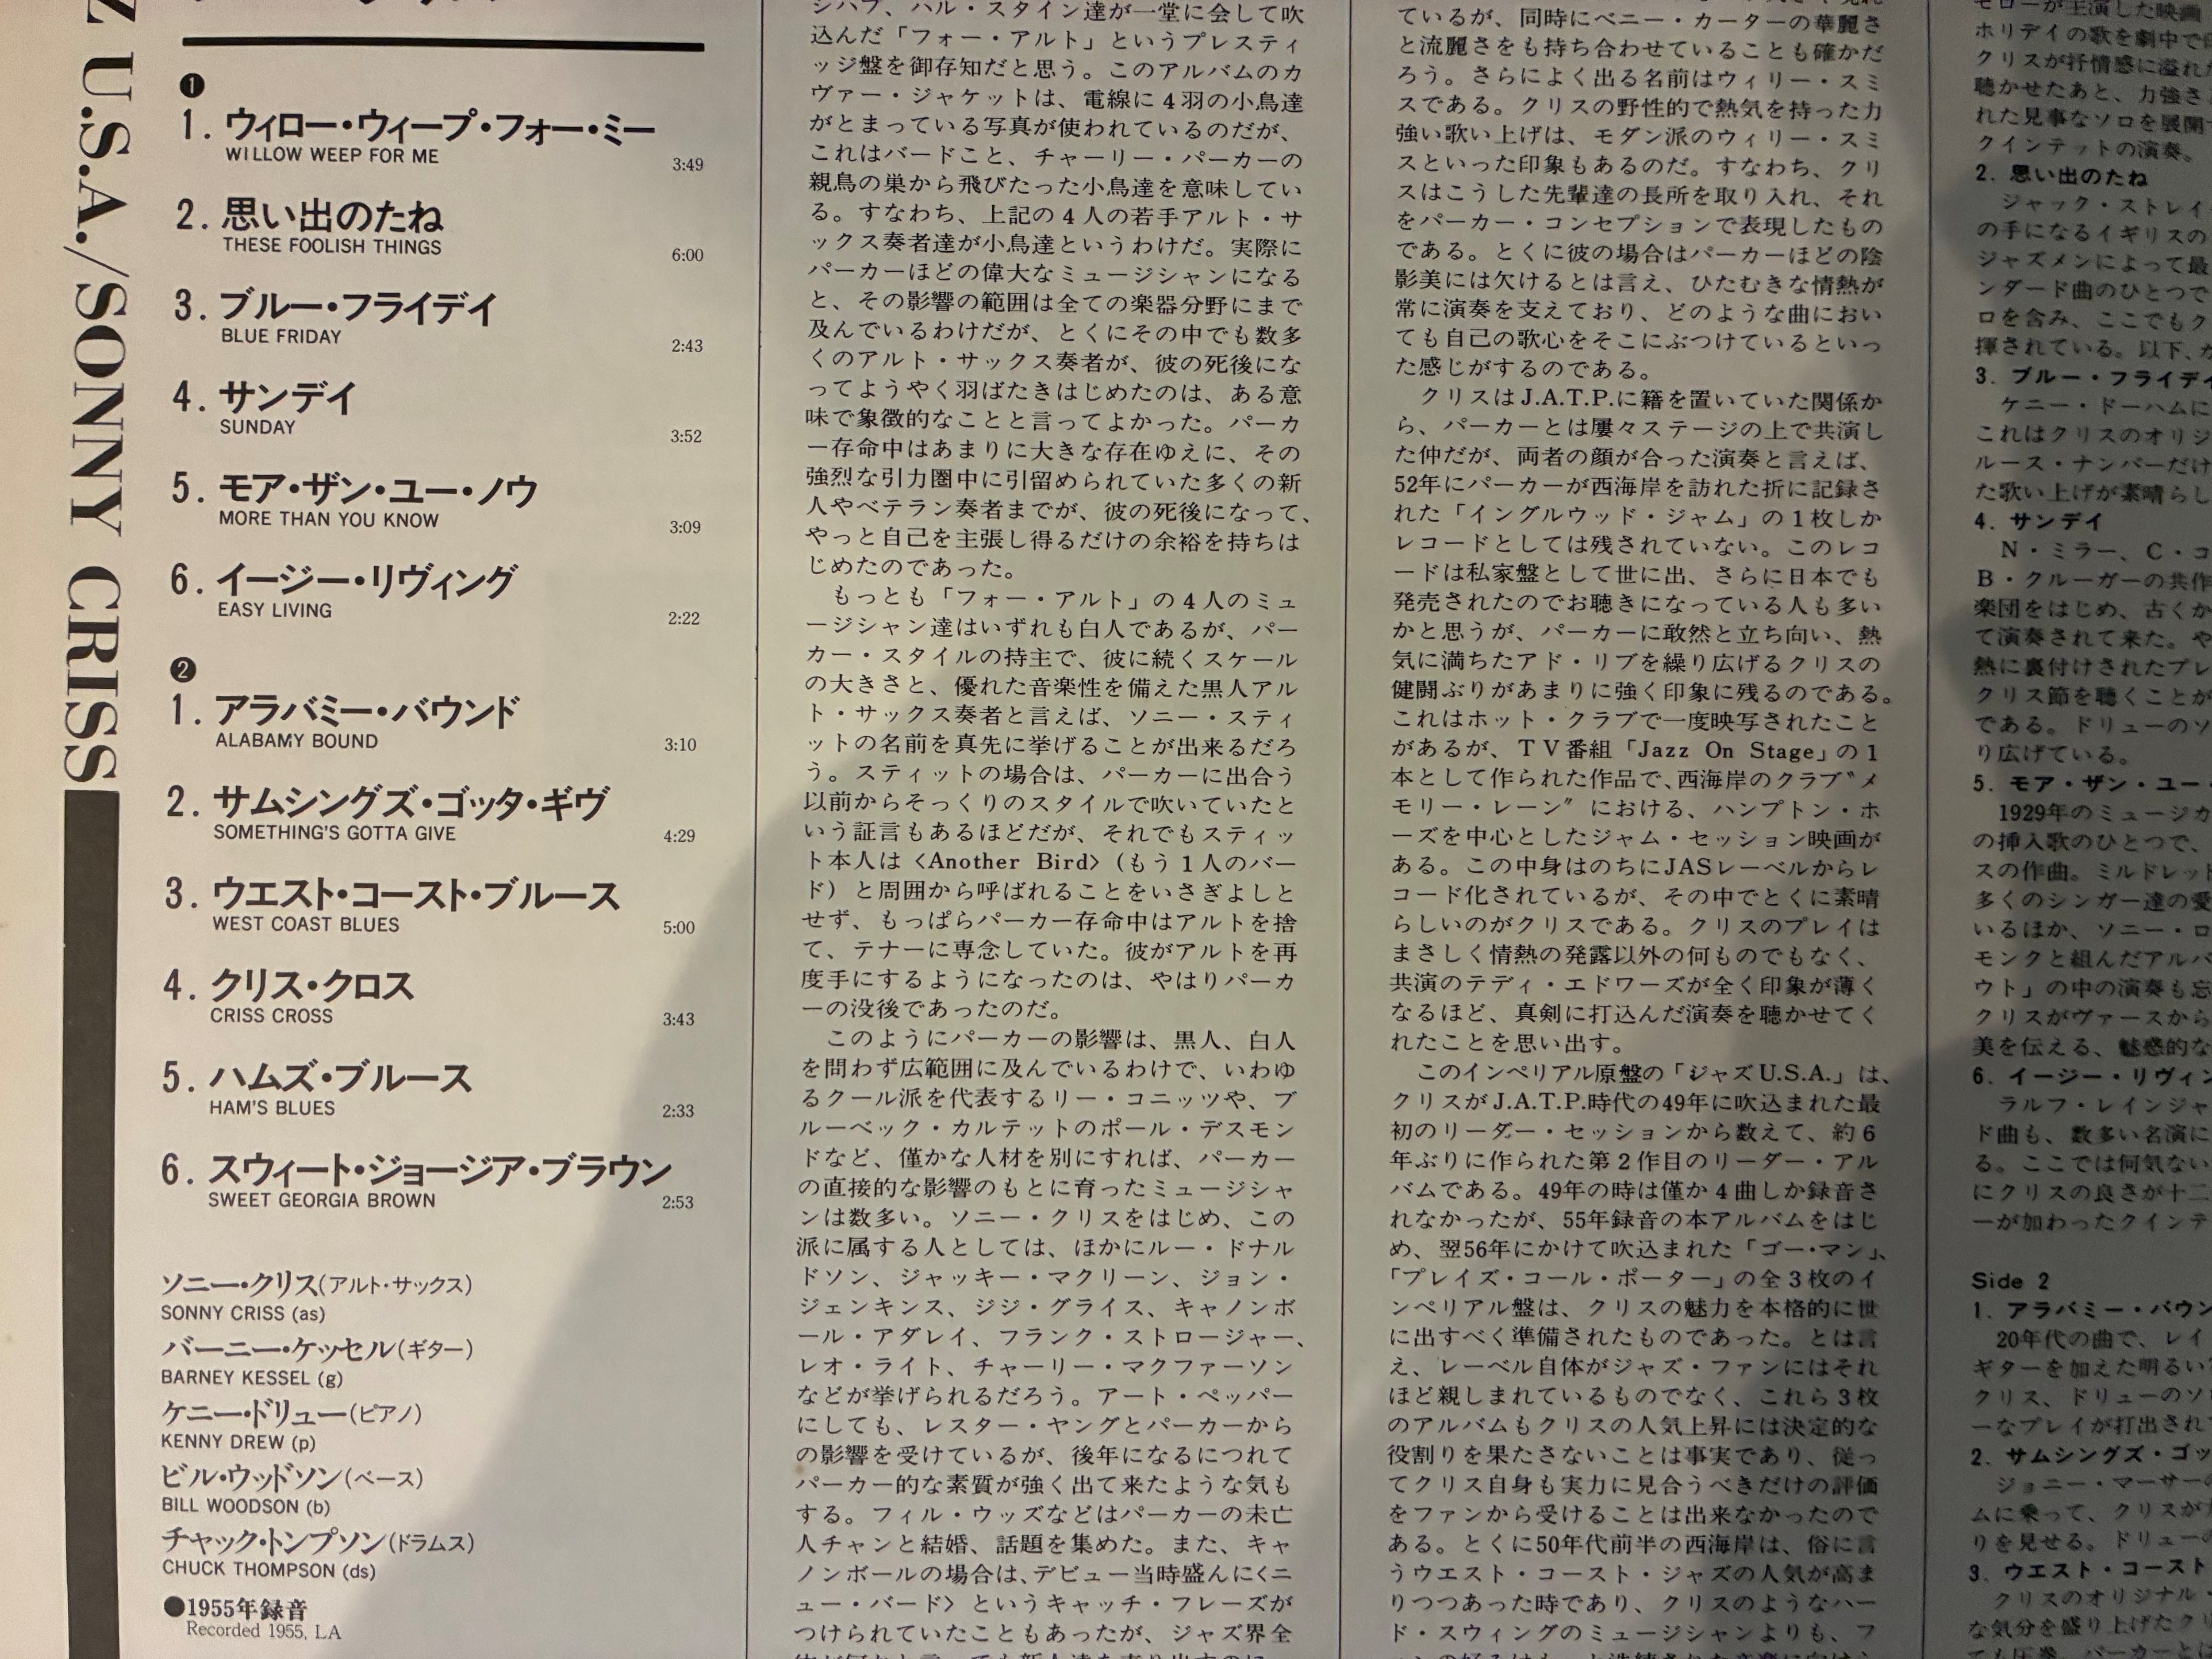 Z U.S.A./SONNY CRISS
❶
1. ウィロー・ウィープ・フォー・ミー
WILLOW WEEP FOR ME 3:49
2. 思い出のたね
THESE FOOLISH THINGS 6:00
3. ブルー・フライデイ
BLUE FRIDAY 2:43
4. サンデイ
SUNDAY 3:52
5. モア・ザン・ユー・ノウ
MORE THAN YOU KNOW 3:09
6. イージー・リヴィング
EASY LIVING 2:22
❷
1. アラバミー・バウンド
ALABAMY BOUND 3:10
2. サムシングズ・ゴッタ・ギヴ
SOMETHING'S GOTTA GIVE 4:29
3. ウエスト・コースト・ブルース
WEST COAST BLUES 5:00
4. クリス・クロス
CRISS CROSS 3:43
5. ハムズ・ブルース
HAM'S BLUES 2:33
6. スウィート・ジョージア・ブラウン
SWEET GEORGIA BROWN 2:53
ソニー・クリス(アルト・サックス)
SONNY CRISS (as)
バーニー・ケッセル(ギター)
BARNEY KESSEL (g)
ケニー・ドリュー(ピアノ)
KENNY DREW (p)
ビル・ウッドソン(ベース)
BILL WOODSON (b)
チャック・トンプソン(ドラムス)
CHUCK THOMPSON (ds)
●1955年録音
Recorded 1955, LA
シハブ、ハル・スタイン達が一堂に会して吹
込んだ「フォー・アルト」というプレスティ
ッジ盤を御存知だと思う。このアルバムのカ
ヴァー・ジャケットは、電線に4羽の小鳥達
がとまっている写真が使われているのだが、
これはバードこと、チャーリー・パーカーの
親鳥の巣から飛びたった小鳥達を意味してい
る。すなわち、上記の4人の若手アルト・サ
ックス奏者達が小鳥達というわけだ。実際に
パーカーほどの偉大なミュージシャンになる
と、その影響の範囲は全ての楽器分野にまで
及んでいるわけだが、とくにその中でも数多
くのアルト・サックス奏者が、彼の死後にな
ってようやく羽ばたきはじめたのは、ある意
味で象徴的なことと言ってよかった。パーカ
ー存命中はあまりに大きな存在ゆえに、その
強烈な引力圏中に引留められていた多くの新
人やベテラン奏者までが、彼の死後になって、
やっと自己を主張し得るだけの余裕を持ちは
じめたのであった。
もっとも「フォー・アルト」の4人のミュ
ージシャン達はいずれも白人であるが、パー
カー・スタイルの持主で、彼に続くスケール
の大きさと、優れた音楽性を備えた黒人アル
ト・サックス奏者と言えば、ソニー・スティ
ットの名前を真先に挙げることが出来るだろ
う。スティットの場合は、パーカーに出合う
以前からそっくりのスタイルで吹いていたと
いう証言もあるほどだが、それでもスティッ
ト本人は〈Another Bird〉(もう1人のバー
ド)と周囲から呼ばれることをいさぎよしと
せず、もっぱらパーカー存命中はアルトを捨
て、テナーに専念していた。彼がアルトを再
度手にするようになったのは、やはりパーカ
ーの没後であったのだ。
このようにパーカーの影響は、黒人、白人
を問わず広範囲に及んでいるわけで、いわゆ
るクール派を代表するリー・コニッツや、ブ
ルーベック・カルテットのポール・デスモン
ドなど、僅かな人材を別にすれば、パーカー
の直接的な影響のもとに育ったミュージシャ
ンは数多い。ソニー・クリスをはじめ、この
派に属する人としては、ほかにルー・ドナル
ドソン、ジャッキー・マクリーン、ジョン・
ジェンキンス、ジジ・グライス、キャノンボ
ール・アダレイ、フランク・ストロージャー、
レオ・ライト、チャーリー・マクファーソン
などが挙げられるだろう。アート・ペッパー
にしても、レスター・ヤングとパーカーから
の影響を受けているが、後年になるにつれて
パーカー的な素質が強く出て来たような気も
する。フィル・ウッズなどはパーカーの未亡
人チャンと結婚、話題を集めた。また、キャ
ノンボールの場合は、デビュー当時盛んに〈ニ
ュー・バード〉というキャッチ・フレーズが
つけられていたこともあったが、ジャズ界全
ているが、同時にベニー・カーターの華麗さ
と流麗さをも持ち合わせていることも確かだ
ろう。さらによく出る名前はウィリー・スミ
スである。クリスの野性的で熱気を持った力
強い歌い上げは、モダン派のウィリー・スミ
スといった印象もあるのだ。すなわち、クリ
スはこうした先輩達の長所を取り入れ、それ
をパーカー・コンセプションで表現したもの
である。とくに彼の場合はパーカーほどの陰
影美には欠けるとは言え、ひたむきな情熱が
常に演奏を支えており、どのような曲におい
ても自己の歌心をそこにぶつけているといっ
た感じがするのである。
クリスはJ.A.T.P.に籍を置いていた関係か
ら、パーカーとは屢々ステージの上で共演し
た仲だが、両者の顔が合った演奏と言えば、
52年にパーカーが西海岸を訪れた折に記録さ
れた「イングルウッド・ジャム」の1枚しか
レコードとしては残されていない。このレコ
ードは私家盤として世に出、さらに日本でも
発売されたのでお聴きになっている人も多い
かと思うが、パーカーに敢然と立ち向い、熱
気に満ちたアド・リブを繰り広げるクリスの
健闘ぶりがあまりに強く印象に残るのである。
これはホット・クラブで一度映写されたこと
があるが、TV番組「Jazz On Stage」の1
本として作られた作品で、西海岸のクラブ〝メ
モリー・レーン〟における、ハンプトン・ホ
ーズを中心としたジャム・セッション映画が
ある。この中身はのちにJASレーベルからレ
コード化されているが、その中でとくに素晴
らしいのがクリスである。クリスのプレイは
まさしく情熱の発露以外の何ものでもなく、
共演のテディ・エドワーズが全く印象が薄く
なるほど、真剣に打込んだ演奏を聴かせてく
れたことを思い出す。
このインペリアル原盤の「ジャズU.S.A.」は、
クリスがJ.A.T.P.時代の49年に吹込まれた最
初のリーダー・セッションから数えて、約6
年ぶりに作られた第2作目のリーダー・アル
バムである。49年の時は僅か4曲しか録音さ
れなかったが、55年録音の本アルバムをはじ
め、翌56年にかけて吹込まれた「ゴー・マン」、
「プレイズ・コール・ポーター」の全3枚のイ
ンペリアル盤は、クリスの魅力を本格的に世
に出すべく準備されたものであった。とは言
え、レーベル自体がジャズ・ファンにはそれ
ほど親しまれているものでなく、これら3枚
のアルバムもクリスの人気上昇には決定的な
役割りを果たさないことは事実であり、従っ
てクリス自身も実力に見合うべきだけの評価
をファンから受けることは出来なかったので
ある。とくに50年代前半の西海岸は、俗に言
うウエスト・コースト・ジャズの人気が高ま
りつつあった時であり、クリスのようなハー
ド・スウィングのミュージシャンよりも、フ
モローが主演した映画
ホリデイの歌を劇中で
クリスが抒情感に溢れ
聴かせたあと、力強さ
れた見事なソロを展開
クインテットの演奏。
2. 思い出のたね
ジャック・ストレイ
の手になるイギリスの
ジャズメンによって最
ンダード曲のひとつで
ロを含み、ここでもク
揮されている。以下、
3. ブルー・フライデイ
ケニー・ドーハムに
これはクリスのオリジ
ルース・ナンバーだけ
た歌い上げが素晴らし
4. サンデイ
N・ミラー、C・コ
B・クルーガーの共作
楽団をはじめ、古くか
て演奏されて来た。や
熱に裏付けされたプレ
クリス節を聴くことが
である。ドリューのソ
り広げている。
5. モア・ザン・ユー・
1929年のミュージカ
の挿入歌のひとつで、
スの作曲。ミルドレッド
多くのシンガー達の愛
いるほか、ソニー・ロ
モンクと組んだアルバ
ウト」の中の演奏も忘
クリスがヴァースから
美を伝える、魅惑的な
6. イージー・リヴィン
ラルフ・レインジャ
ド曲も、数多い名演に
る。ここでは何気ない
にクリスの良さが十二
ーが加わったクインテ
Side 2
1. アラバミー・バウン
20年代の曲で、レイ
ギターを加えた明るい
クリス、ドリューのソ
ーなプレイが打出され
2. サムシングズ・ゴッ
ジョニー・マーサーの
ムに乗って、クリスが
りを見せる。ドリューの
3. ウエスト・コースト
クリスのオリジナル
な気分を盛り上げたクリ